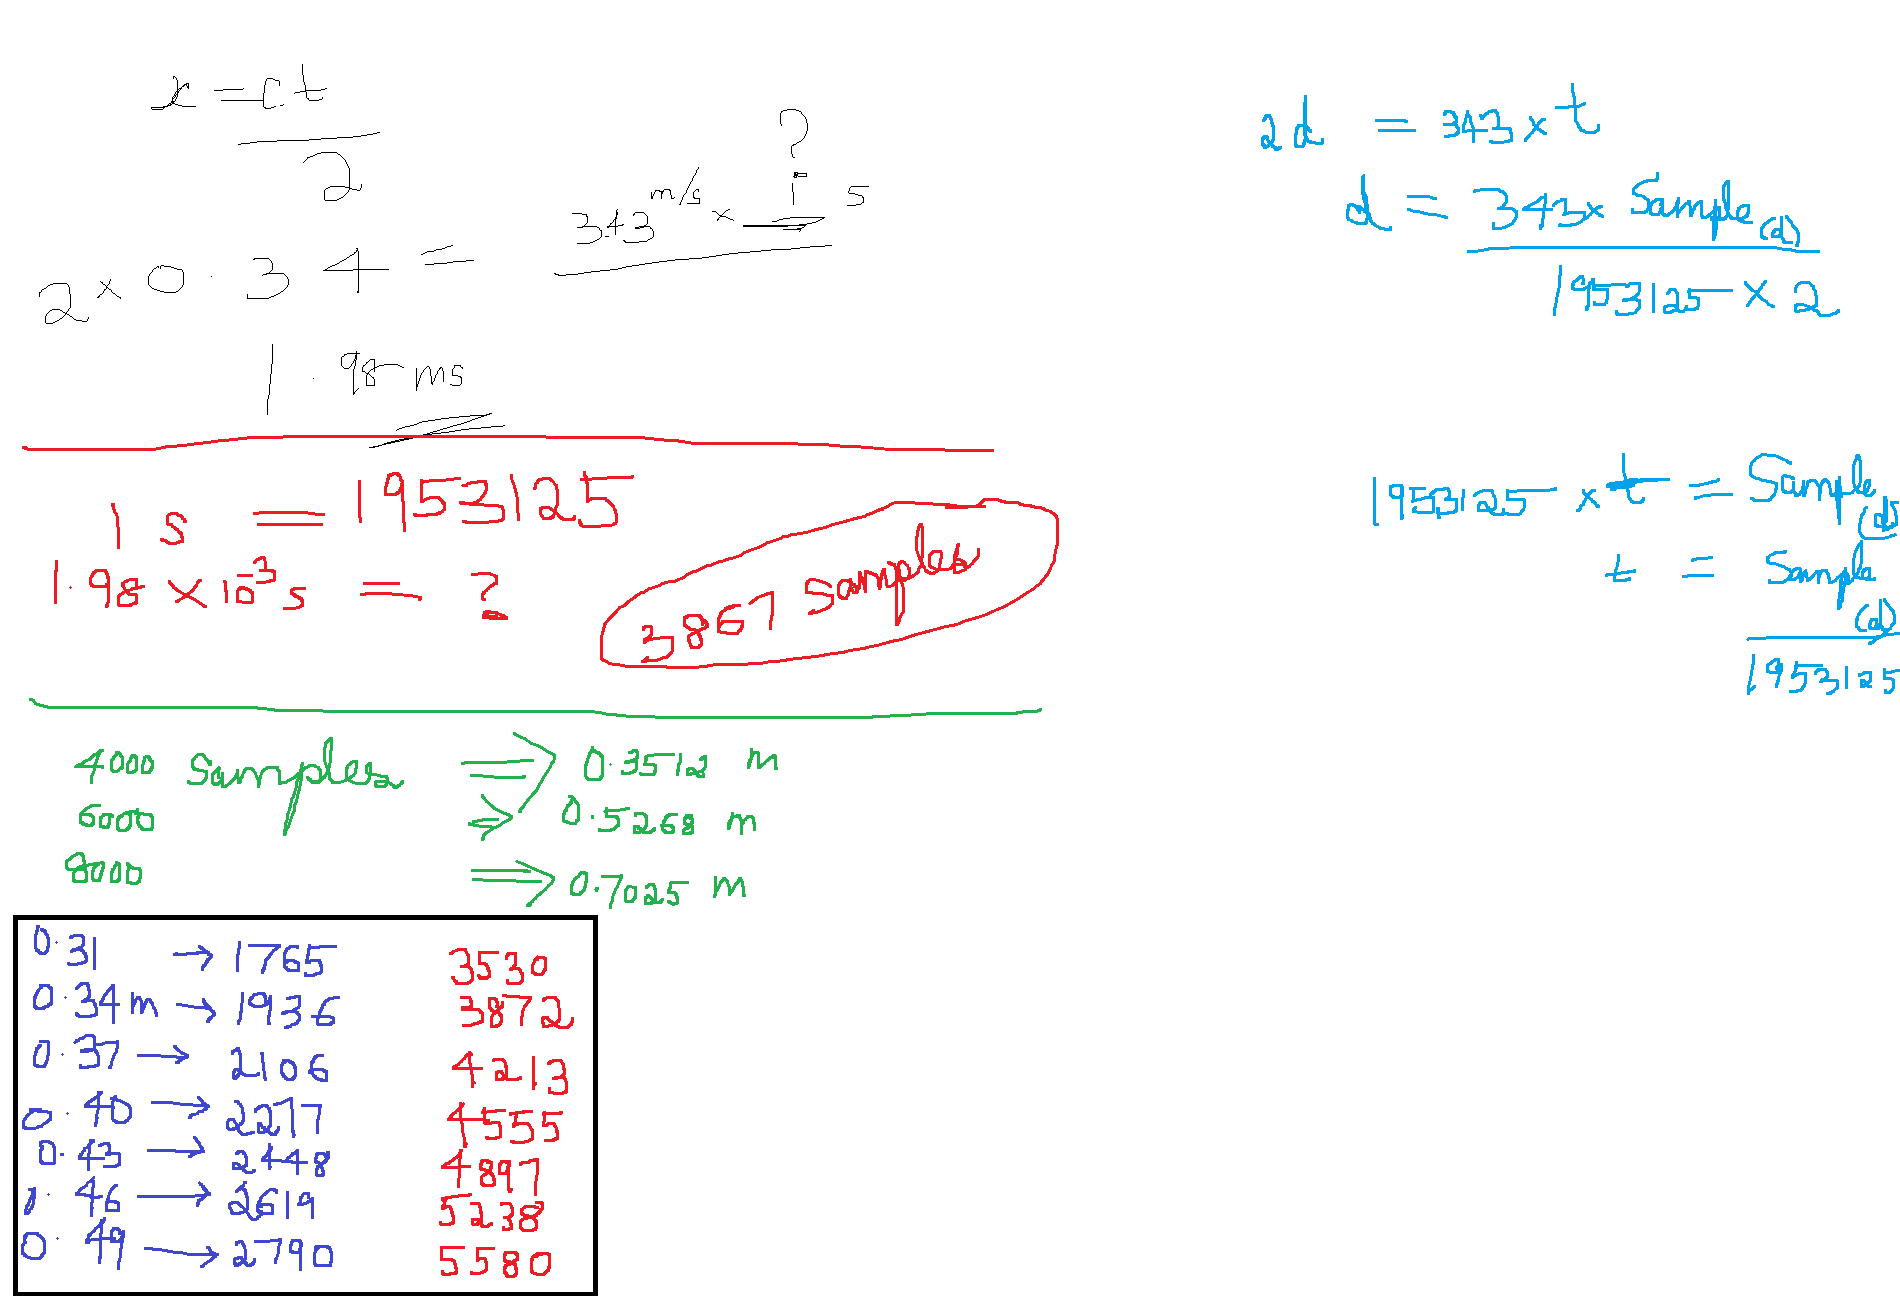 x = ct
2
2 × 0.34 = 343 m/s × ? s
1.98 ms
1 s = 1953125
1.98 × 10⁻³ s = ?
3867 Samples
4000 Samples ⇒ 0.3512 m
6000 ⇒ 0.5268 m
8000 ⇒ 0.7025 m
0.31 → 1765 3530
0.34 m → 1936 3872
0.37 → 2106 4213
0.40 → 2277 4555
0.43 → 2448 4897
0.46 → 2619 5238
0.49 → 2790 5580
2d = 343 × t
d = 343 × Sample (d)
1953125 × 2
1953125 × t = Sample (d)
t = Sample (d)
1953125